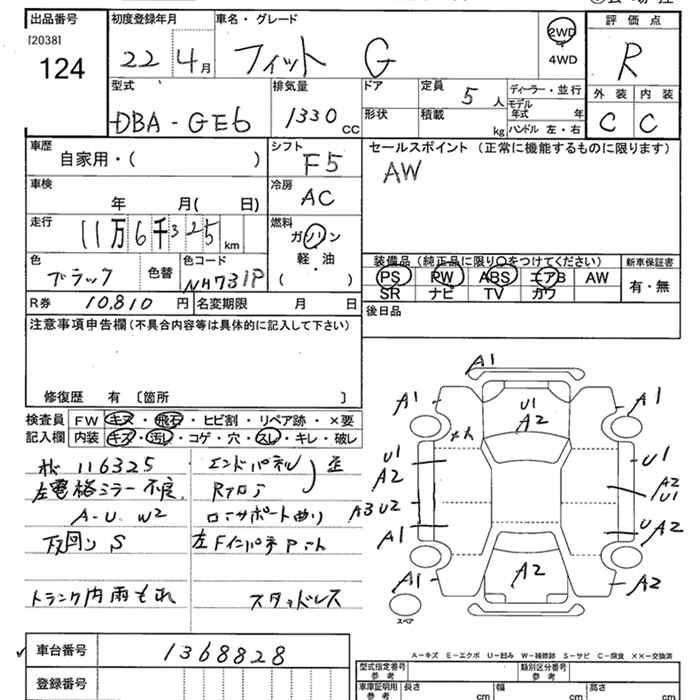 出品番号
[2038]
124
初度登録年月
22 4月
車名・グレード
フィット G
2WD
4WD
評価点
R
型式
DBA-GE6
排気量
1330 cc
ドア
形状
定員
5人
積載
kg
ディーラー・並行
モデル年式 年
ハンドル 左・右
外装 内装
C C
車歴
自家用・( )
シフト
F5
セールスポイント (正常に機能するものに限ります)
AW
車検
年 月( 日)
冷房
AC
走行
11万6千325 km
燃料
ガソリン
軽・油
( )
色
ブラック
色替
色コード
NH731P
装備品 (純正品に限り○をつけてください)
新車保証書
PS PW ABS エアB AW
SR ナビ TV カワ
有・無
R券 10,810 円
名変期限 月 日
後日品
注意事項申告欄 (不具合内容等は具体的に記入して下さい)
修復歴 有 〔箇所 〕
検査員
記入欄
FW キズ・飛石・ヒビ割・リペア跡・×要
内装 キズ・汚レ・コゲ・穴・スレ・キレ・破レ
116325
エンドパネル
左電格ミラー不良
A-U W2
下回り S
トランク内雨もれ
スタッドレス
A1
A1
A1
U1
A2
U1
A2
U1
A2
U1
A3 U2
A1
U A2
A1
A2
A2
スペア
車台番号
1368828
登録番号
A-キズ E-エクボ U-凹み W-補修跡 S-サビ C-腐食 ××-交換済
型式指定番号
参考
類別区分番号
参考
車庫証明用
参考
長さ cm
幅 cm
高さ cm